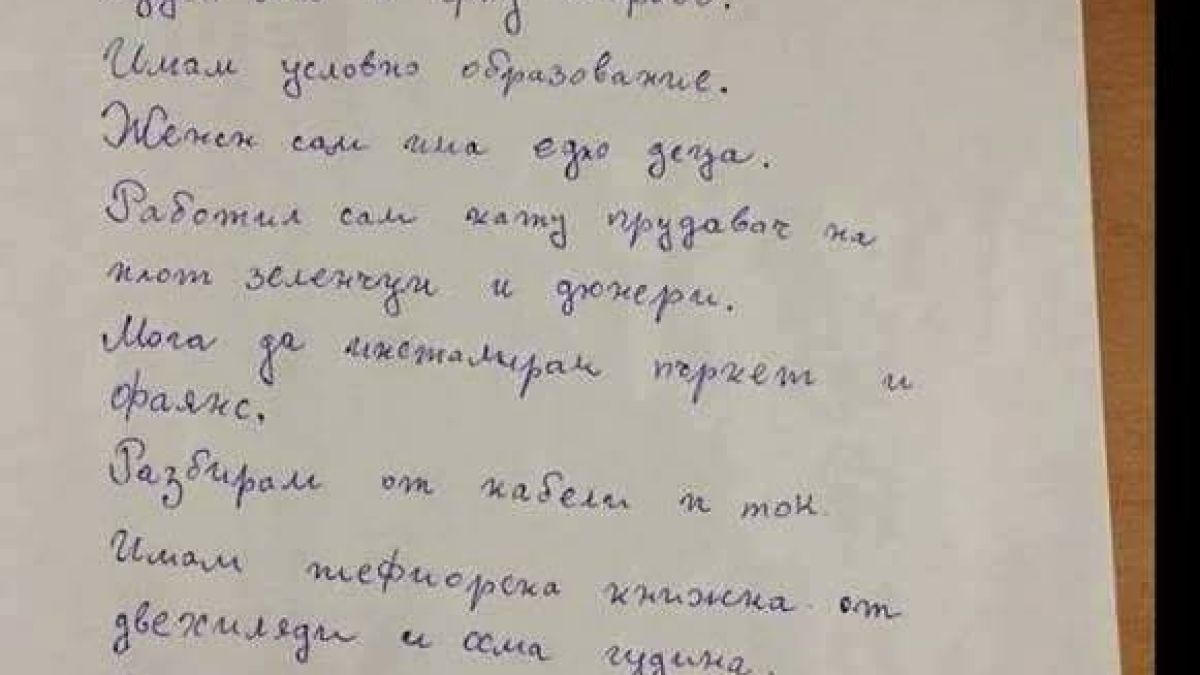 Имам условно образование.
Женен сам има едно деца.
Работил сам кату прудавач на
плот зеленчуци и дюнери.
Мога да инсталирам пъркет и
фаянс.
Разбирам от кабели и ток.
Имам шефиорска книжка от
двехиляди и осма гудина.